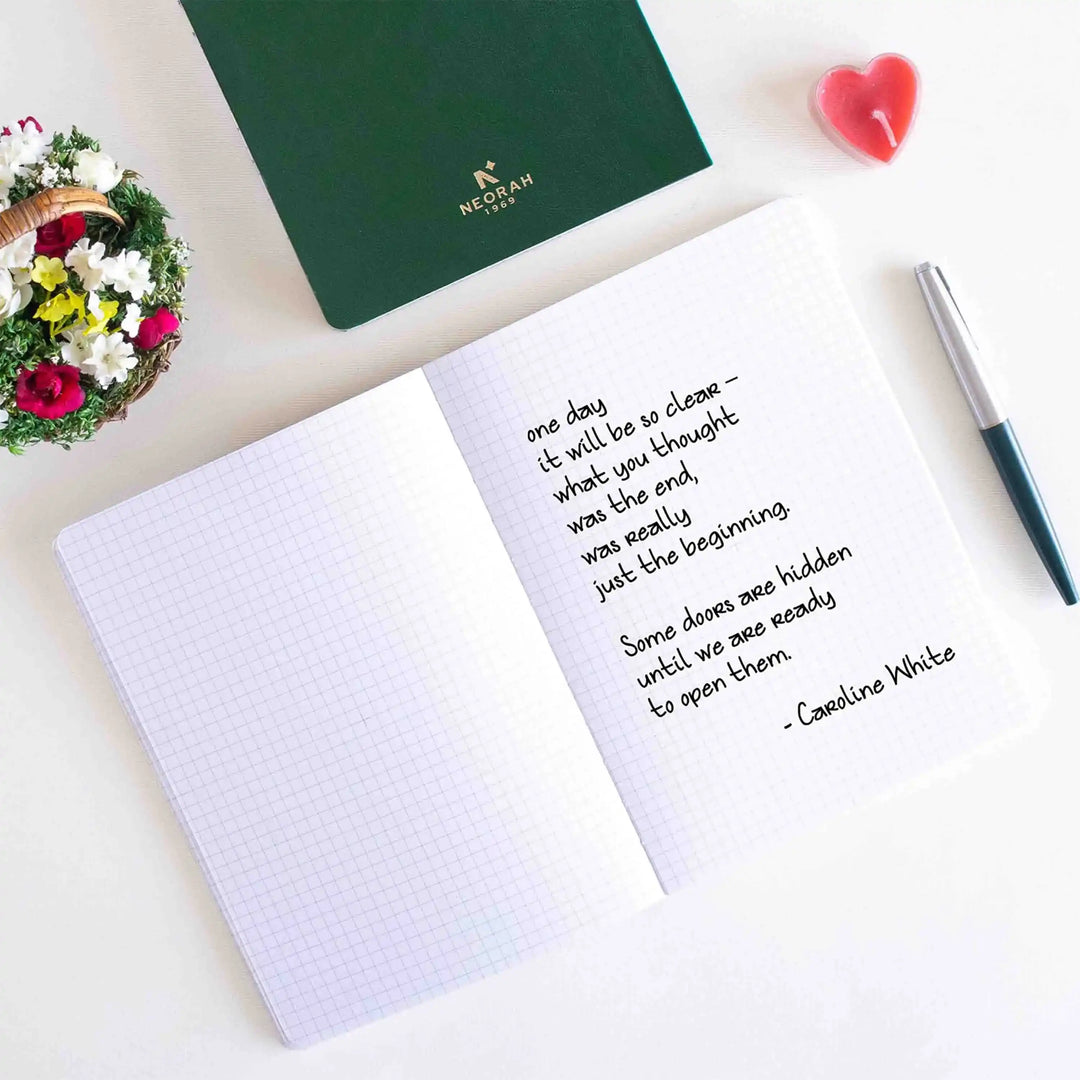 NEORAH
1969
one day
it will be so clear –
what you thought
was the end,
was really
just the beginning.
Some doors are hidden
until we are ready
to open them.
- Caroline White